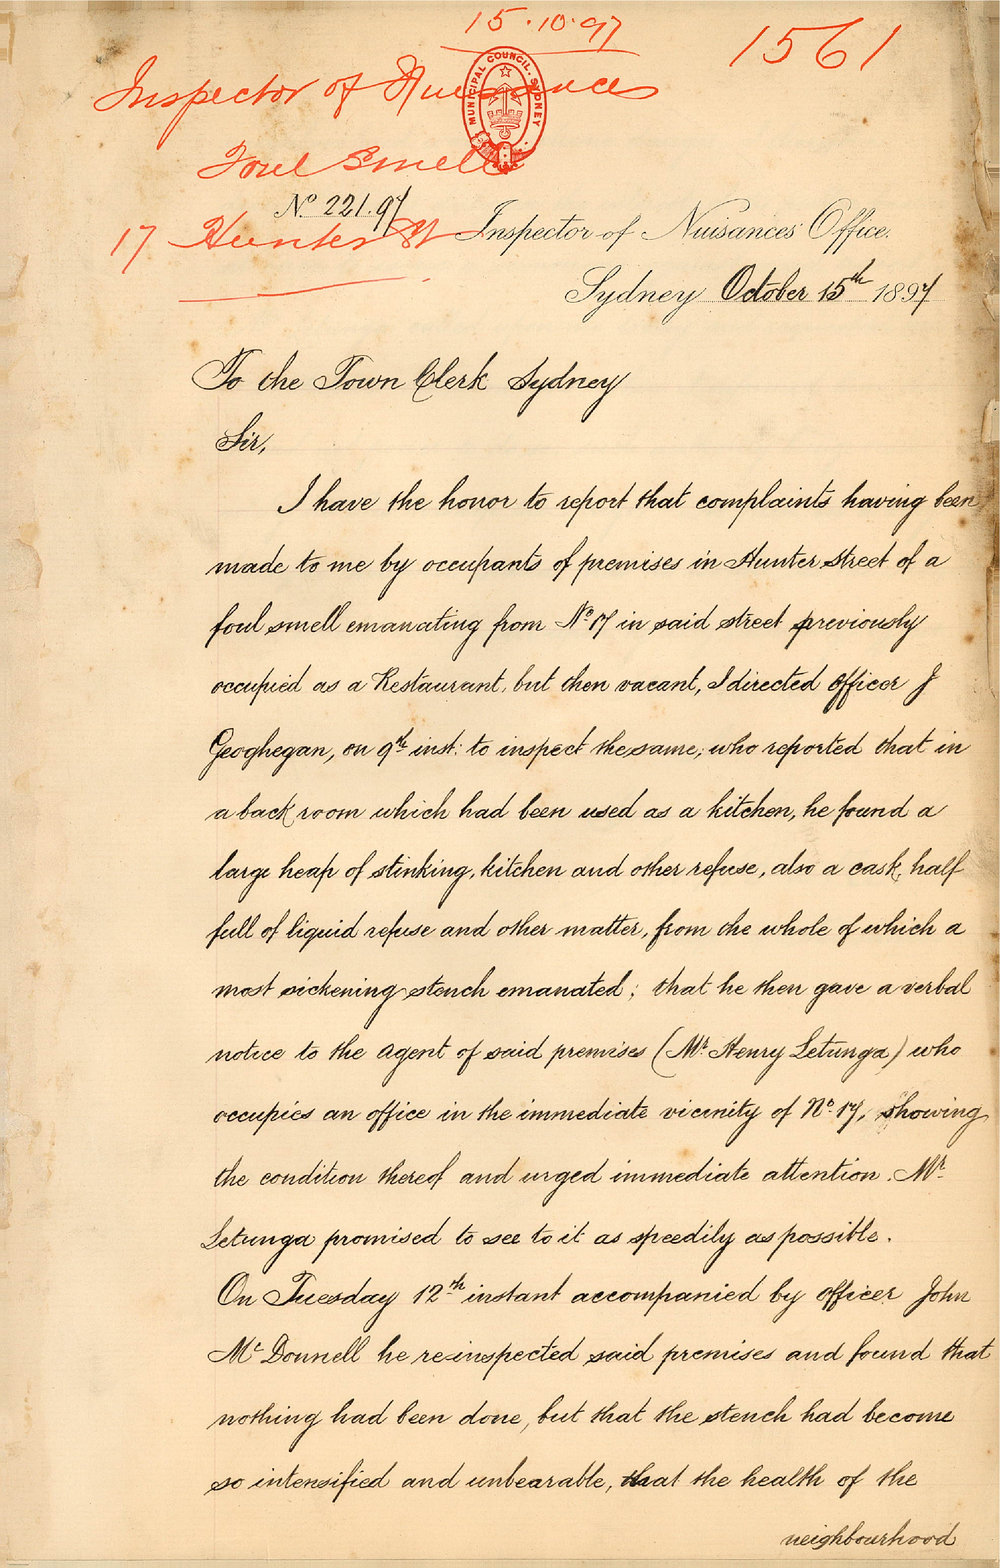 15.10.97
1561
Inspector of Nuisances
MUNICIPAL COUNCIL. SYDNEY
Foul Smell
No. 221.97
17 Hunter St
Inspector of Nuisances' Office.
Sydney October 15th 1897
To the Town Clerk Sydney
Sir,
I have the honor to report that complaints having been
made to me by occupants of premises in Hunter Street of a
foul smell emanating from No. 17 in said street previously
occupied as a Restaurant, but then vacant, I directed Officer J
Geoghegan, on 9th inst: to inspect the same, who reported that in
a back room which had been used as a kitchen, he found a
large heap of stinking, kitchen and other refuse, also a cask, half
full of liquid refuse and other matter, from the whole of which a
most sickening stench emanated; that he then gave a verbal
notice to the Agent of said premises (Mr. Henry Setunga) who
occupies an office in the immediate vicinity of No. 17, showing
the condition thereof and urged immediate attention. Mr.
Setunga promised to see to it as speedily as possible.
On Tuesday 12th instant accompanied by Officer John
Mc Donnell he re-inspected said premises and found that
nothing had been done, but that the stench had become
so intensified and unbearable, that the health of the
neighbourhood